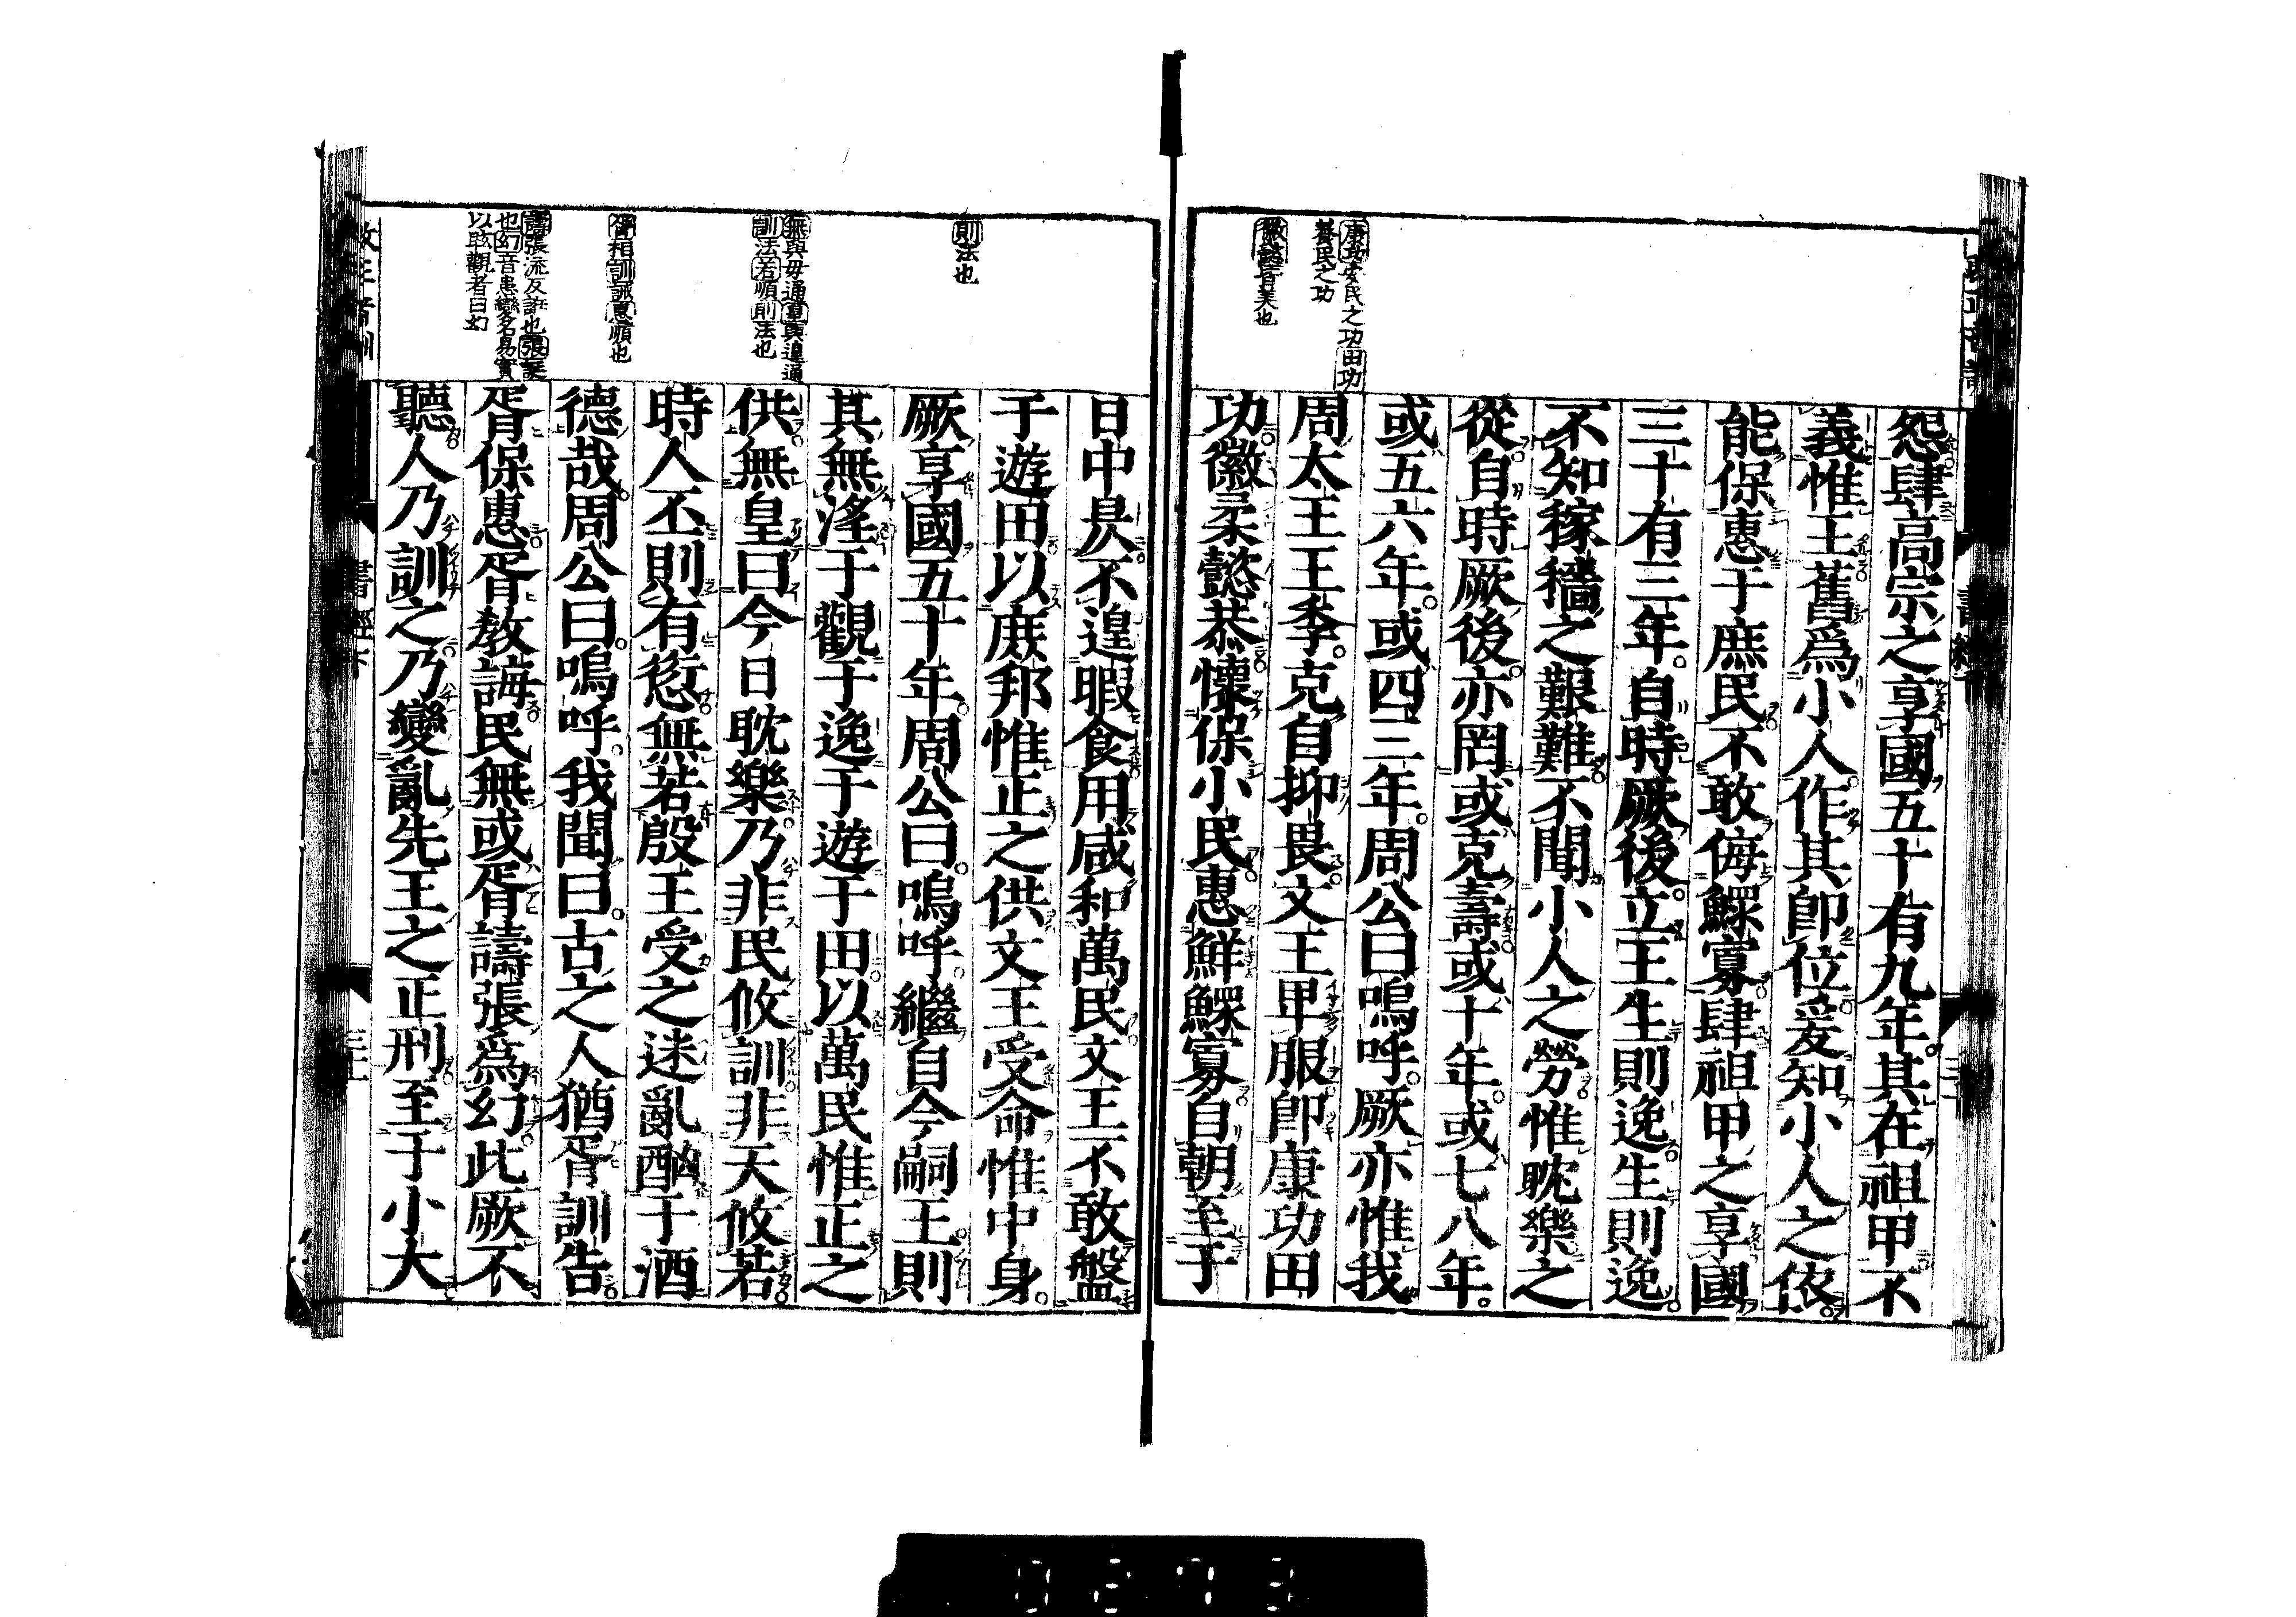 康功安民之功田功
養民之功
徽懿皆美也
怨肆高宗之享國五十有九年其在祖甲不
義惟王舊爲小人作其卽位爰知小人之依
能保惠于庶民不敢侮鰥寡肆祖甲之享國
三十有三年自時厥後立王生則逸生則逸
不知稼穡之艱難不聞小人之勞惟耽樂之
從自時厥後亦罔或克壽或十年或七八年
或五六年或四三年周公曰嗚呼厥亦惟我
周太王王季克自抑畏文王卑服卽康功田
功徽柔懿恭懷保小民惠鮮鰥寡自朝至于
則法也
無與毋通皇與遑通
訓法若順則法也
胥相訓誡惠順也
譸張流反誑也張誕
也幻音患變名易實
以眩觀者曰幻
日中昃不遑暇食用咸和萬民文王不敢盤
于遊田以庶邦惟正之供文王受命惟中身
厥享國五十年周公曰嗚呼繼自今嗣王則
其無淫于觀于逸于遊于田以萬民惟正之
供無皇曰今日耽樂乃非民攸訓非天攸若
時人丕則有愆無若殷王受之迷亂酗于酒
德哉周公曰嗚呼我聞曰古之人猶胥訓告
胥保惠胥敎誨民無或胥譸張爲幻此厥不
聽人乃訓之乃變亂先王之正刑至于小大
書經下
0273